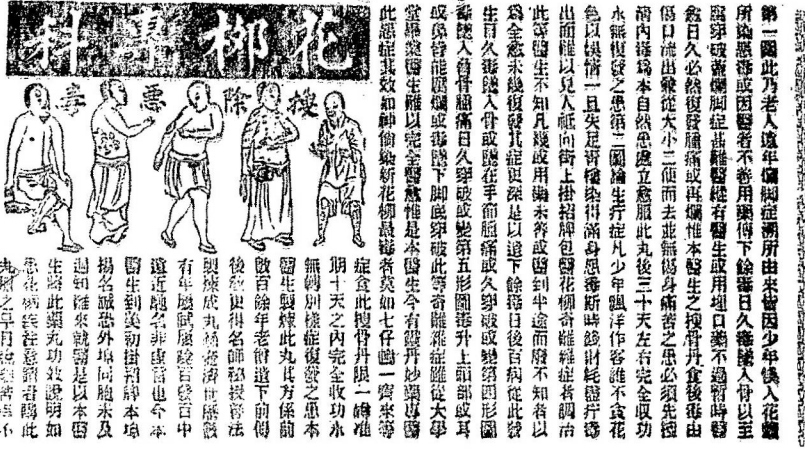 花柳專科
搜除惡毒
第一圖此乃老人遠年爛脚症溯所由來皆因少年悞入花叢
所染惡毒或因醫者不善用藥傅下餘毒日久毒墜入骨以至
穿破舊爛脚症甚難醫縱有醫生或用埋口藥不過暫時醫
愈日久必然復發腫痛或再爛惟本醫生之搜骨丹食後毒由
傷口流出兼從大小二便而去並無傷身痛苦之患必須先搜
清內毒爲本自然患處立愈服此丸後三十天左右完全收功
永無復發之患第二圖論生疔症凡少年飄洋作客誰不貪花
色以娛情一旦失足青樓染得滿身惡毒斯時錢財耗盡疔毒
出而難以見人祗向街上掛招牌包醫花柳奇難雜症者調治
此等醫生不知凡幾或用藥未善或醫到半途而廢不知者以
爲全愈未幾復發其症更深是以遺下餘毒日後百病從此發
生日久毒墜入骨或墜在手節腫痛或久穿破或變第四形圖
毒墜入骨腫痛日久穿破或變第五形圖毒升上頭部或耳
或鼻皆能腐爛或毒墜下脚底穿破此等奇難雜症雖從大學
堂畢業醫生難以完全醫愈惟是本醫生今有靈丹妙藥專醫
此惡症其效如神倘染新花柳最毒者莫如七仔一齊來等
症食此搜骨丹限一准
期十天之內完全收功永
無轉別樣症復發之患本
醫生製煉此丸其方係前
數百餘年老僧遺下前傳
後教更得名師秘授法
製煉成丸濟世歷數
有年屢驗百發百中
遠近馳名非虛言也今本
醫生到美初掛招牌本埠
揚名誠恐外埠同胞未及
週知難來就醫是以本醫
生將此藥丸功效說明如
患花柳疾者購此